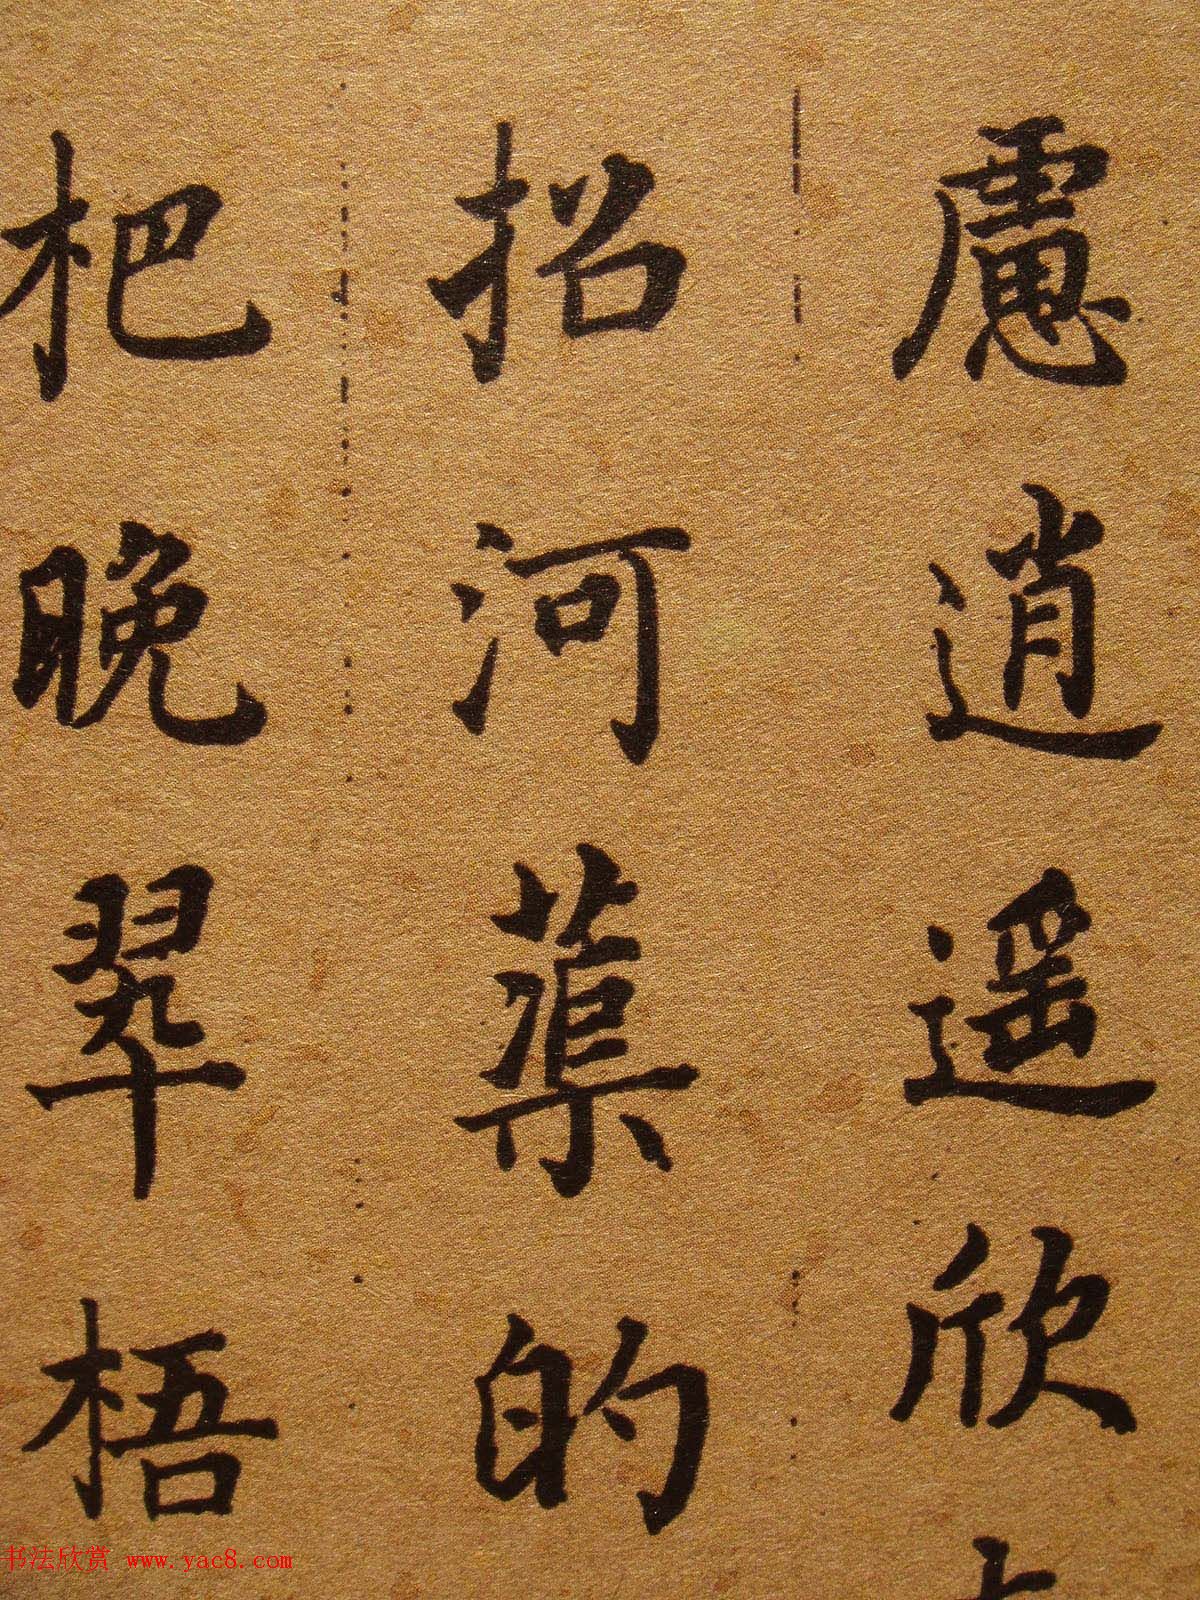 慮逍遥欣
招河蕖的
杷晚翠梧
书法欣赏 www.yac8.com